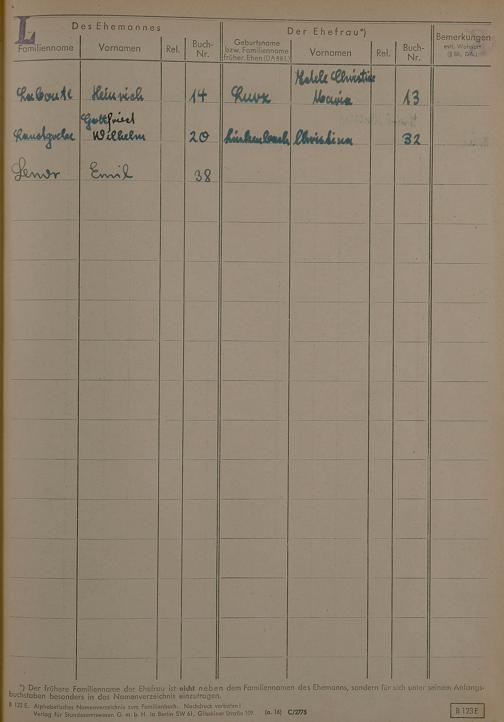 L
Des Ehemannes
Der Ehefrau*)
Familienname Vornamen Rel. Buch-Nr. Geburtsname bzw. Familienname früher. Ehen (DA § 81.) Vornamen Rel. Buch-Nr. Bemerkungen
Heinrich 14 13
Christine
Maria
Gottfried
Wilhelm 20 Linkenbach Christina 32
Emil 38
*) Der frühere Familienname der Ehefrau ist nicht neben dem Familiennamen des Ehemanns, sondern für sich unter seinem Anfangs-
buchstaben besonders in das Namenverzeichnis einzutragen.
B 123 E. Alphabetisches Namenverzeichnis zum Familienbuch. Nachdruck verboten!
Verlag für Standesamtswesen G. m. b. H. in Berlin SW 61, Gitschiner Straße 109. (a. 16) C/2775
B 123 E